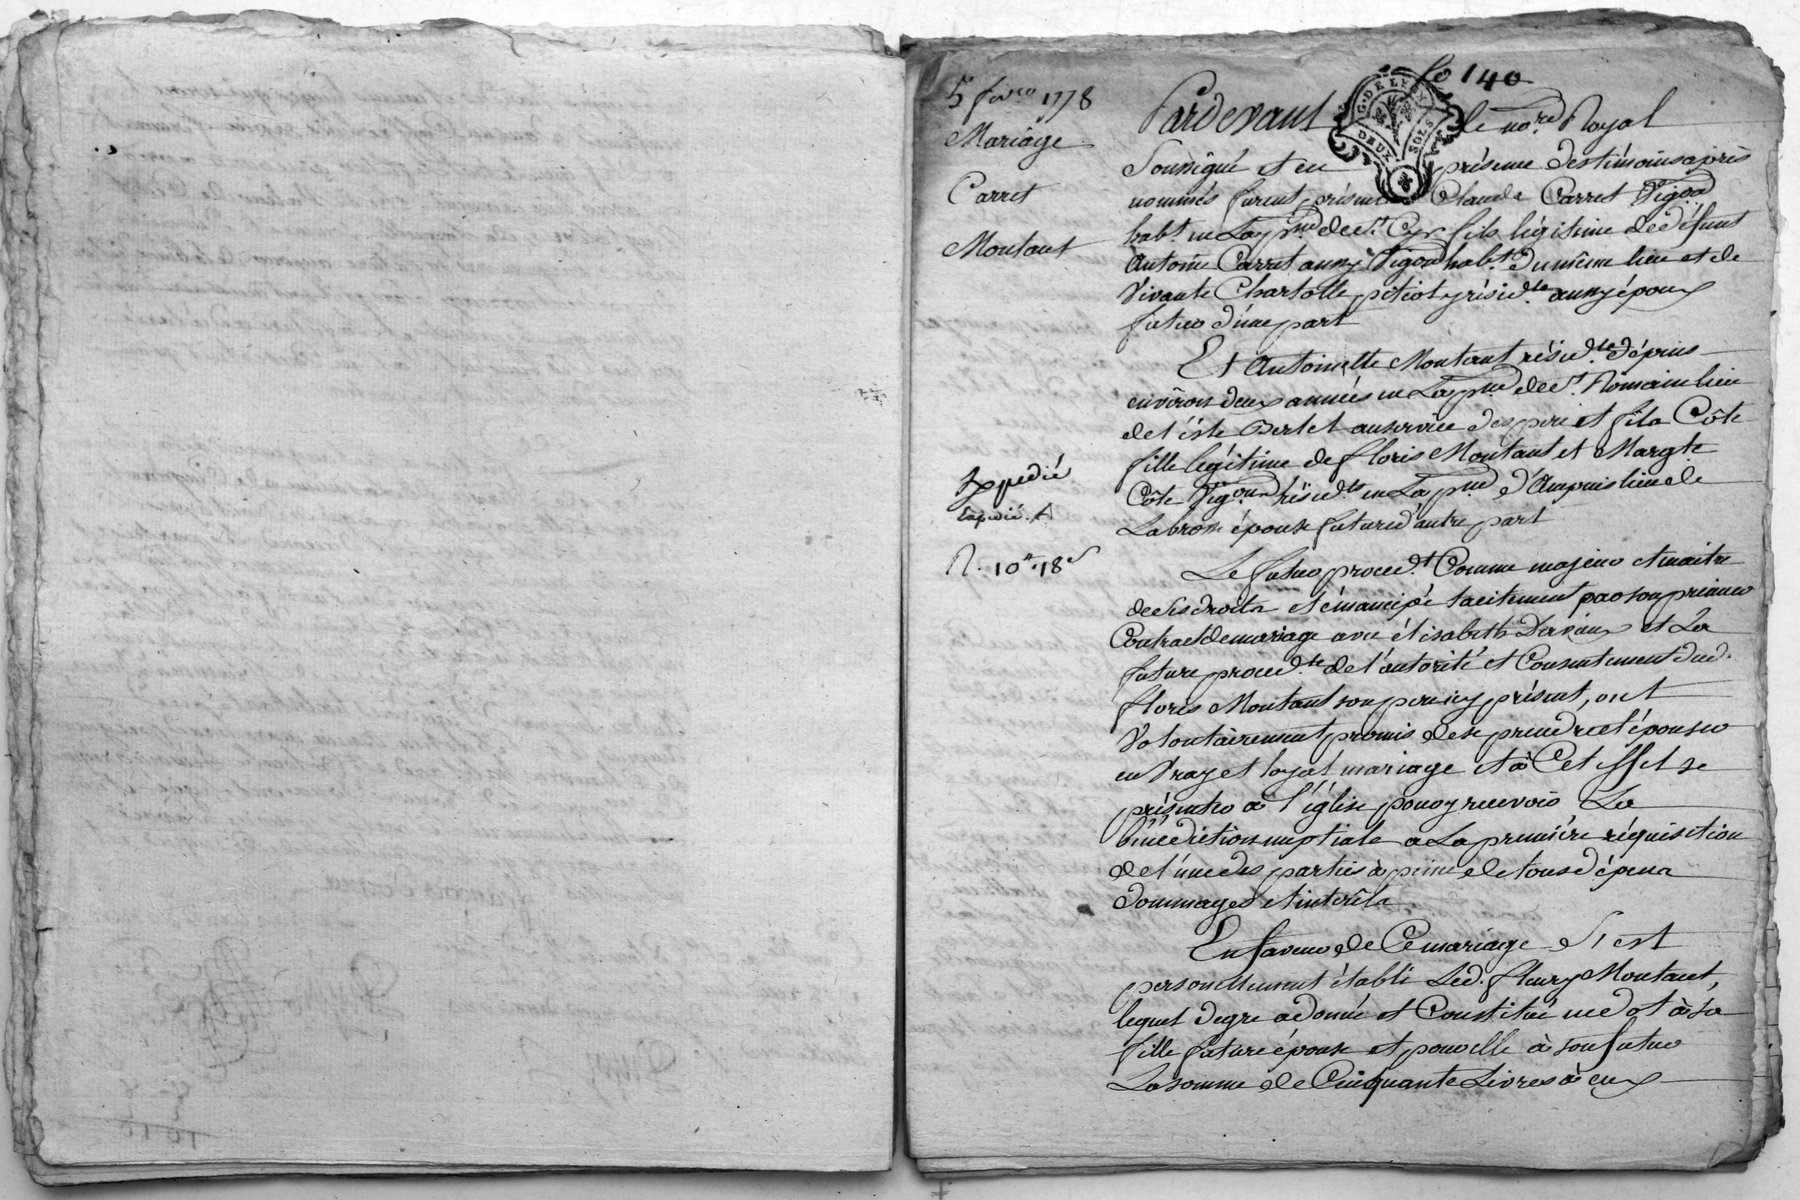 fo 140
5 fév.er 1778
Mariage
Carret
Montant
Expedié
Expedié. A
R. 10# 18s
G. DE LYON
DEUX SOLS
Pardevant le no.re Royal
Soussigné et en présence des témoins après
nommés furent présents Claude Carret Vigon
hab.t en La p.sse de S.t Cyr fils légitime de défunt
Antoine Carret aussy Vigon hab.t du même lieu et de
Vivante Charlotte pitiot y réside.te aussy époux
futur d'une part
Et Antoinette Montant réside.te dépuis
environ deux années en La p.sse de S.t Romain lieu
de l'isle Derlet au service des pere et fils Côte
fille légitime de floris Montant et Marg.te
Côte Vig.ons résid.ts en La p.sse d'Ampuis lieu de
Labrosse épouse future d'autre part
Le futur proced.t Comme majeur et maitre
de ses droits et émancipé tacitement par son prémier
Contract de mariage avec élisabeth Dervaux et La
future proced.te de l'autorité et Consentement dud.
floris Montant son pere icy présent, ont
Volontairement promis de se prendre et épouser
en Vray et loyal mariage et à Cet effet se
présenter à l'église pour y recevoir La
bénédiction nuptiale a La première réquisition
de l'une des parties à peine de tous dépens
dommages et intérêts
En faveur de Ce mariage s'est
personnellement établi Led. fleury Montant,
lequel de gre a donné et Constitué en dot à sa
fille future épouse et pour elle à son futur
La somme de Cinquante Livres à eux